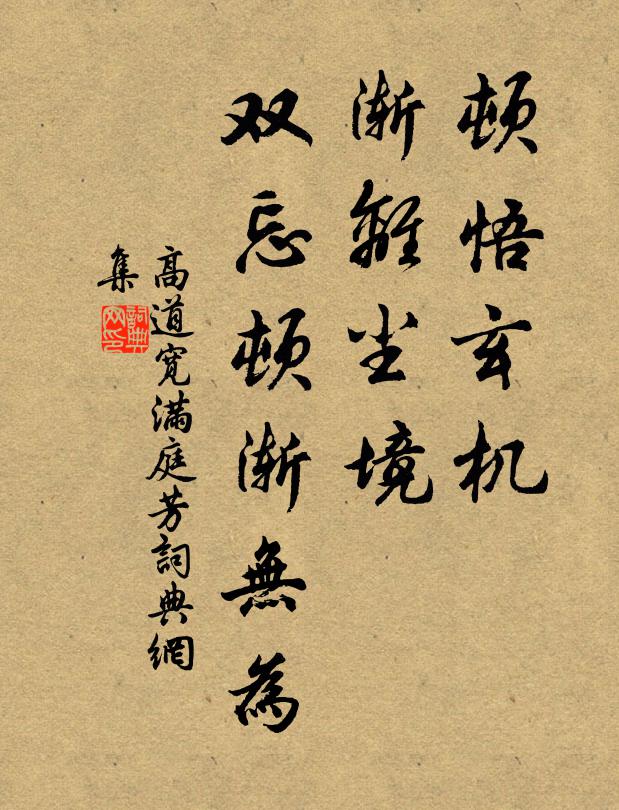 顿悟玄机
渐離尘境
双忘顿渐無為
高道宽满庭芳詞典網
集
詞典网印